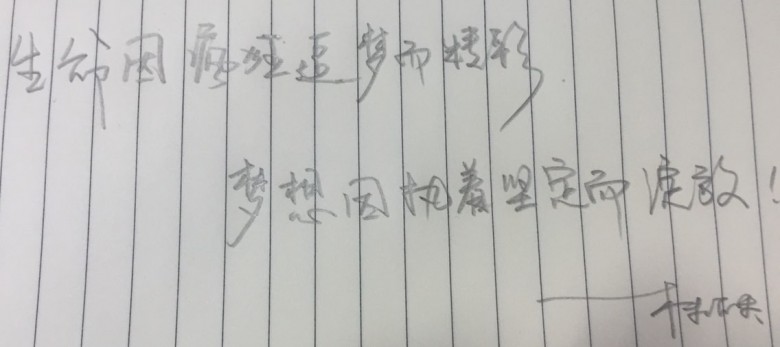 生命因疯狂追梦而精彩
梦想因执着坚定而绽放！
——